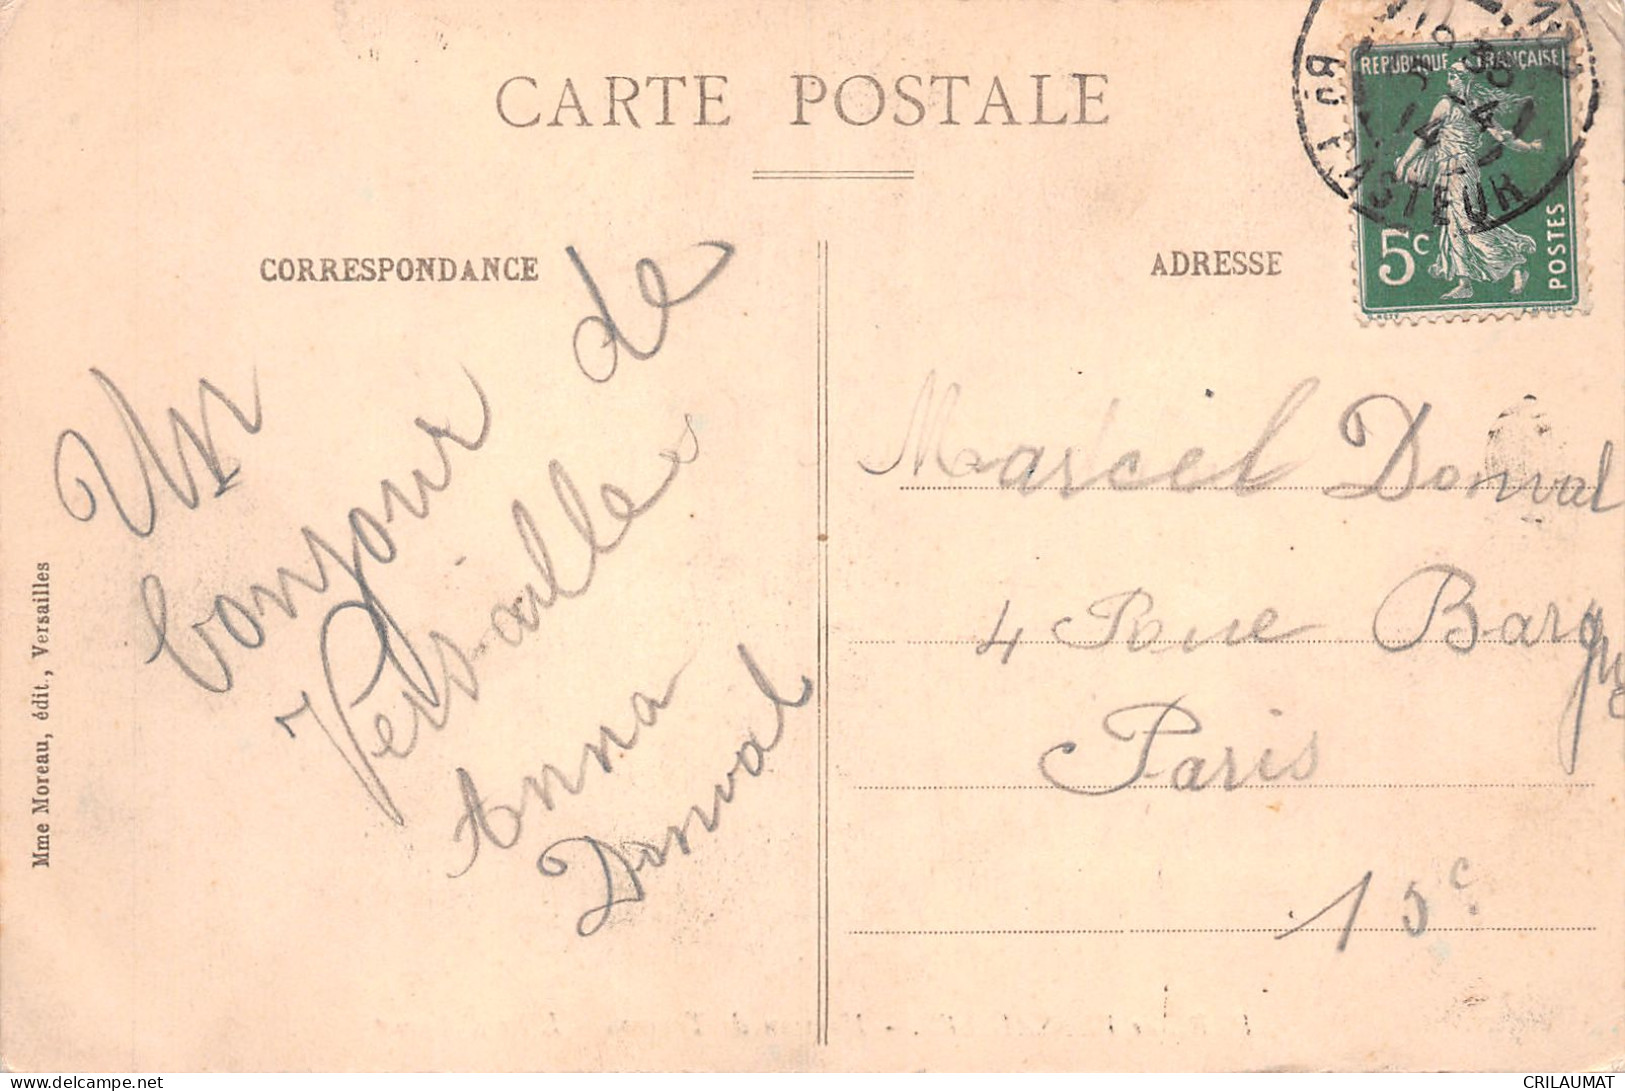 CARTE POSTALE
CORRESPONDANCE
ADRESSE
REPUBLIQUE FRANÇAISE
5c
POSTES
PASTEUR
Un
bonjour de
Versailles
Anna
Donval
Marcel Donval
4 Rue Bargue
Paris
15e
Mme Moreau, édit., Versailles
CRILAUMAT